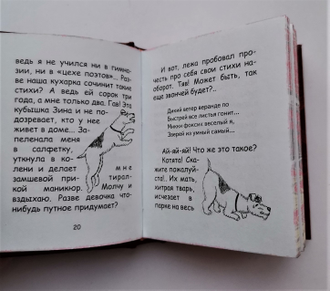 ведь я не учился ни в гимна-
зии, ни в «цехе поэтов»... Ра-
зве наша кухарка сочинит такие
стихи? А ведь ей сорок три
года, а мне только два. Гав! Эта
кубышка Зина и не по-
дозревает, кто у нее
живет в доме... За-
пеленала меня
в салфетку,
уткнула в ко-
лени и делает мне
замшевой тирап-
маникюр. Молчу и
вздыхаю. Разве девочка что-
нибудь путное придумает?
20
И вот, лежа пробовал про-
честь про себя свои стихи на-
оборот. Гав! Может быть, так
еще звончей будет?..
Дикий ветер веранде по
Быстрей все листья гонит...
Миной фоксик веселый я,
Зверой из умный самый...
Ай-яй-яй! Что же это такое?
Котята! Ска-
жите пожалуй-
ста! Их мать,
хитрая тварь,
исчезает в
парке на весь